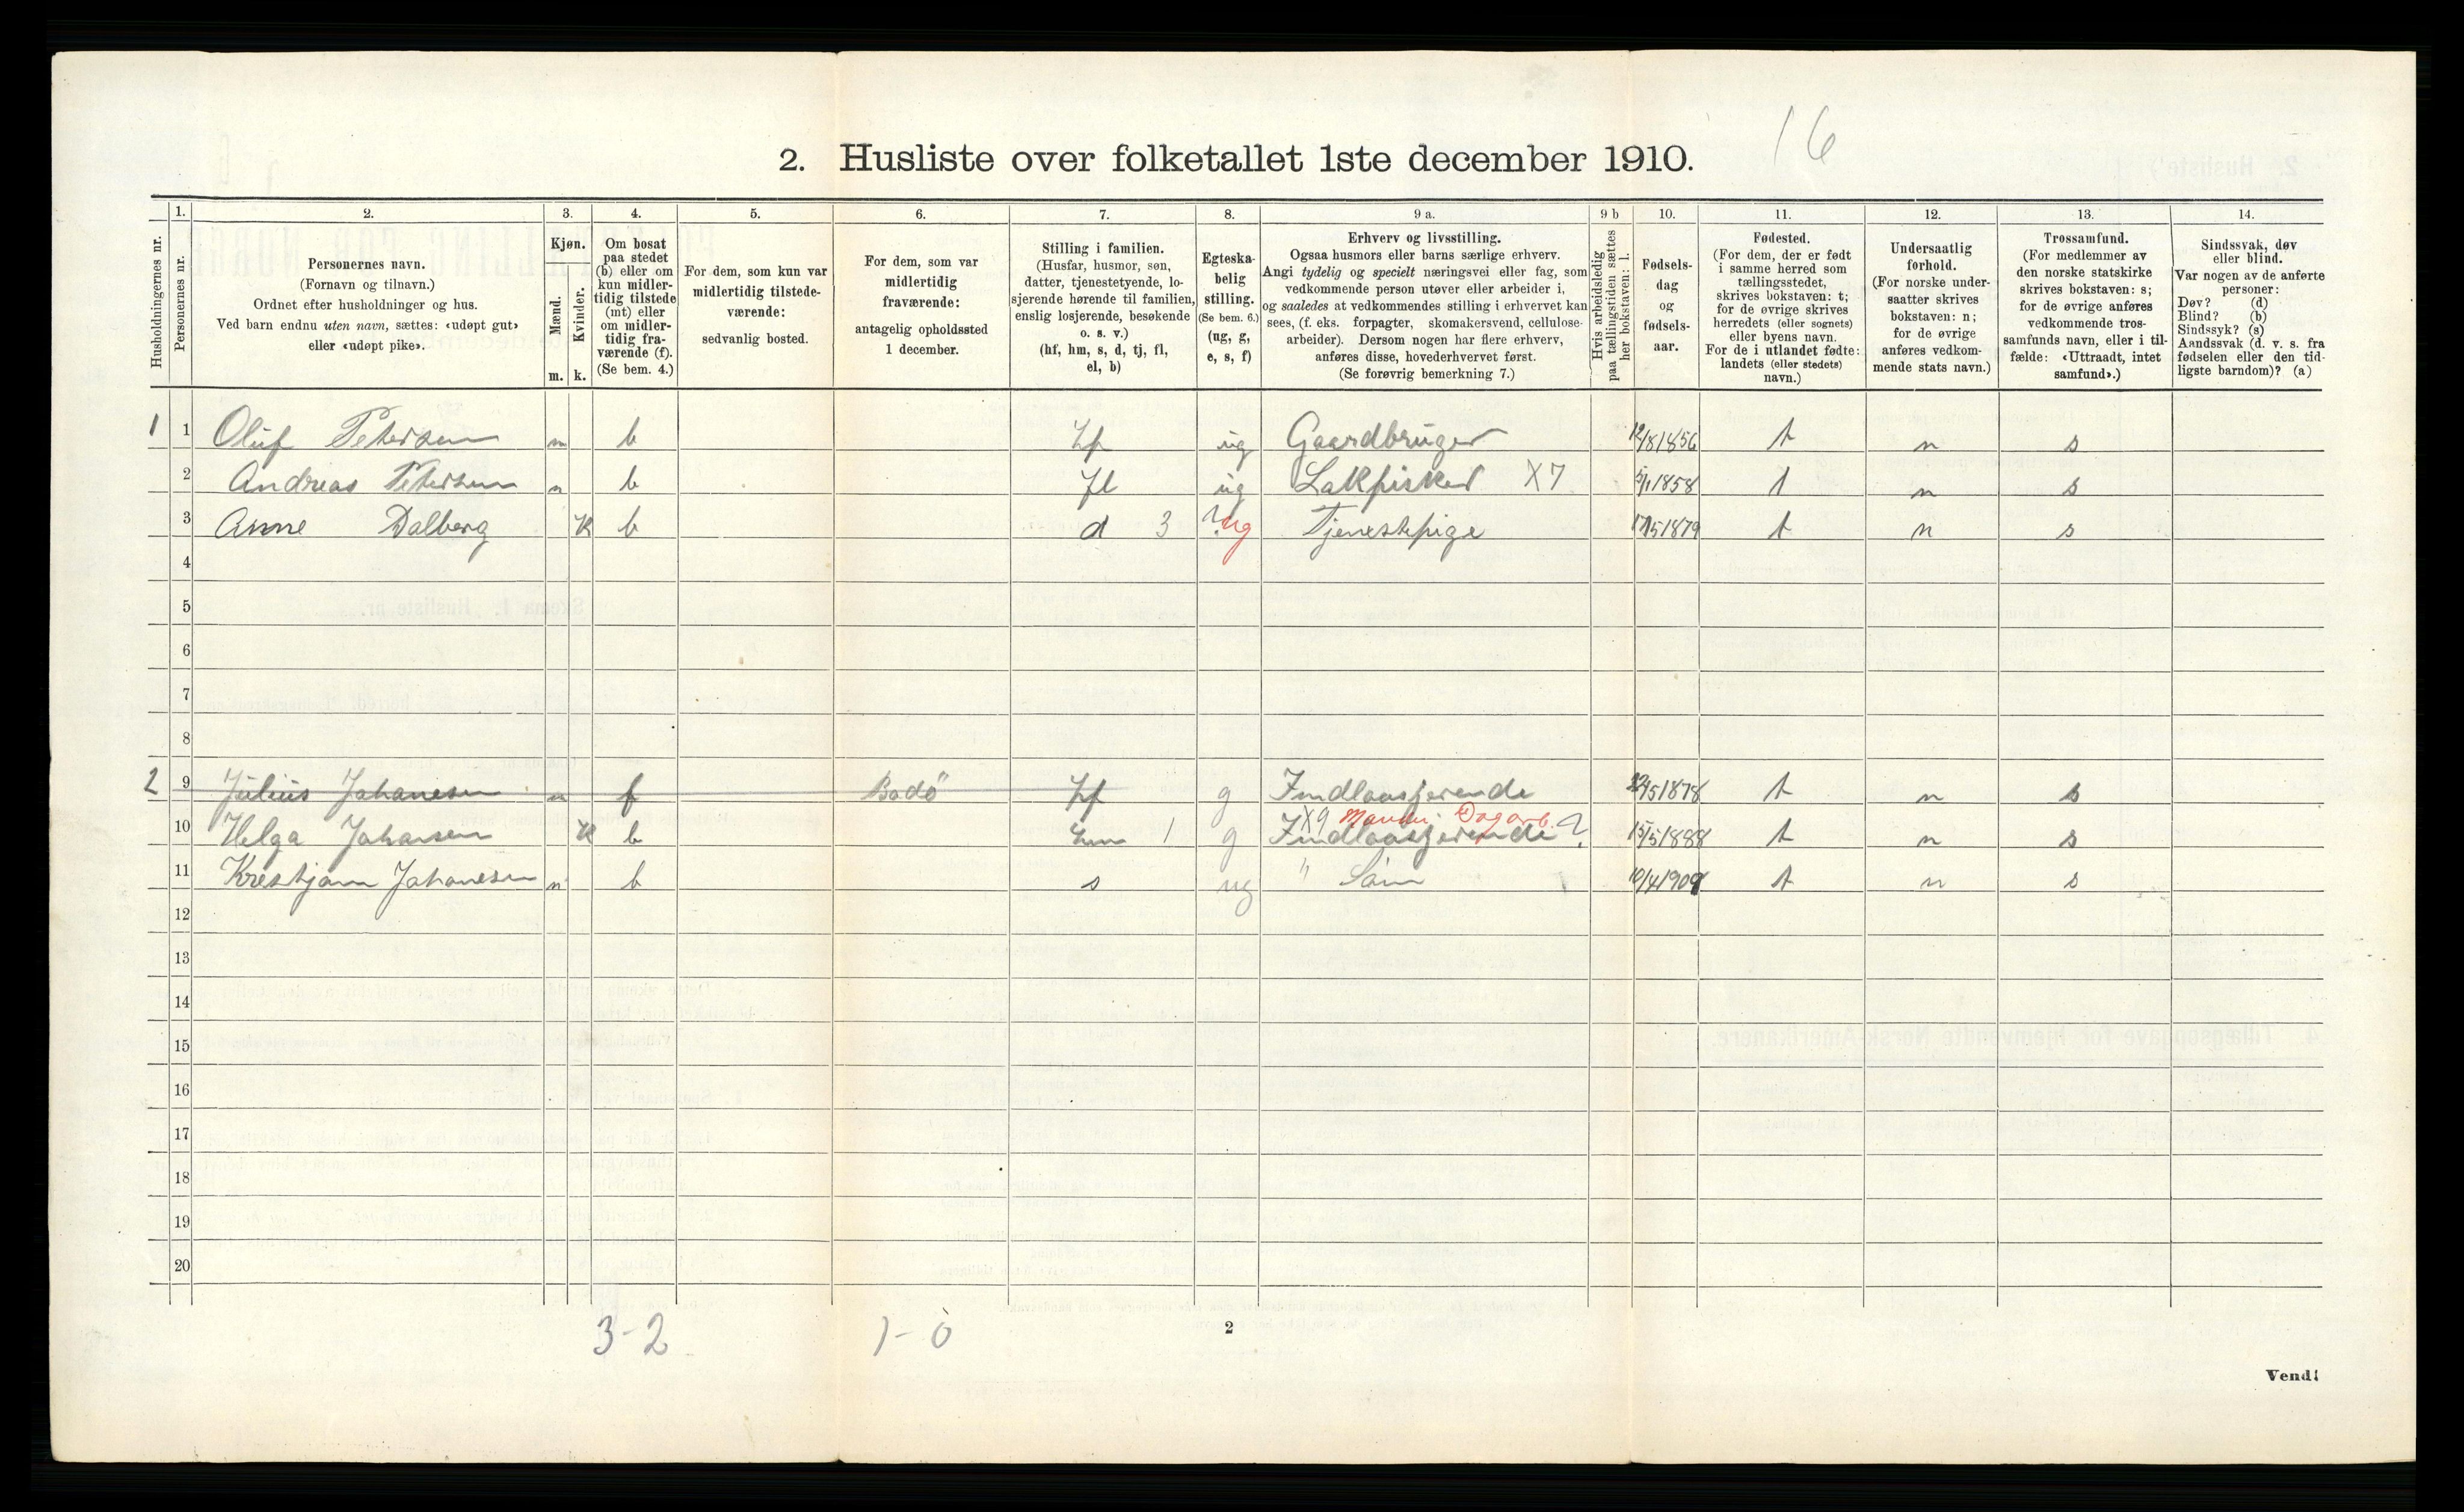 16
2. Husliste over folketallet 1ste december 1910.
Husholdningernes nr.
1. Personernes nr.
2. Personernes navn. (Fornavn og tilnavn.) Ordnet efter husholdninger og hus. Ved barn endnu uten navn, sættes: «udøpt gut» eller «udøpt pike».
3. Kjøn. Mænd. m. Kvinder. k.
4. Om bosat paa stedet (b) eller om kun midlertidig tilstede (mt) eller om midlertidig fraværende (f). (Se bem. 4.)
5. For dem, som kun var midlertidig tilstedeværende: sedvanlig bosted.
6. For dem, som var midlertidig fraværende: antagelig opholdssted 1 december.
7. Stilling i familien. (Husfar, husmor, søn, datter, tjenestetyende, losjerende hørende til familien, enslig losjerende, besøkende o. s. v.) (hf, hm, s, d, tj, fl, el, b)
8. Egteskabelig stilling. (Se bem. 6.) (ug, g, e, s, f)
9 a. Erhverv og livsstilling. Ogsaa husmors eller barns særlige erhverv. Angi tydelig og specielt næringsvei eller fag, som vedkommende person utøver eller arbeider i, og saaledes at vedkommendes stilling i erhvervet kan sees, (f. eks. forpagter, skomakersvend, cellulosearbeider). Dersom nogen har flere erhverv, anføres disse, hovederhvervet først. (Se forøvrig bemerkning 7.)
9 b Hvis arbeidsledig paa tællingstiden sættes her bokstaven: l.
10. Fødselsdag og fødselsaar.
11. Fødested. (For dem, der er født i samme herred som tællingsstedet, skrives bokstaven: t; for de øvrige skrives herredets (eller sognets) eller byens navn. For de i utlandet fødte: landets (eller stedets) navn.)
12. Undersaatlig forhold. (For norske undersaatter skrives bokstaven: n; for de øvrige anføres vedkommende stats navn.)
13. Trossamfund. (For medlemmer av den norske statskirke skrives bokstaven: s; for de øvrige anføres vedkommende trossamfunds navn, eller i tilfælde: «Uttraadt, intet samfund».)
14. Sindssvak, døv eller blind. Var nogen av de anførte personer: Døv? (d) Blind? (b) Sindssyk? (s) Aandssvak (d. v. s. fra fødselen eller den tidligste barndom)? (a)
1 1 Oluf Petersen m b hf ug Gaardbruger 12/8 1856 t n s
2 Andreas Petersen m b fl ug Lakfisker X7 5/1 1858 t n s
3 Anne Dalberg K b d 3 ? ug Tjenestepige 17/5 1879 t n s
4
5
6
7
8
2 9 Julius Johanesen m f Bodö hf g Indloosjerende 22/5 1878 t n s
X9 Manden: Dagarb.
10 Helga Johansen K b hm 1 g Indloosjerende ? 15/5 1888 t n s
11 Krestjann Johanesen m b s ug " Sönn 10/4 1909 t n s
12
13
14
15
16
17
18
19
20
3-2 1-0
2
Vend!